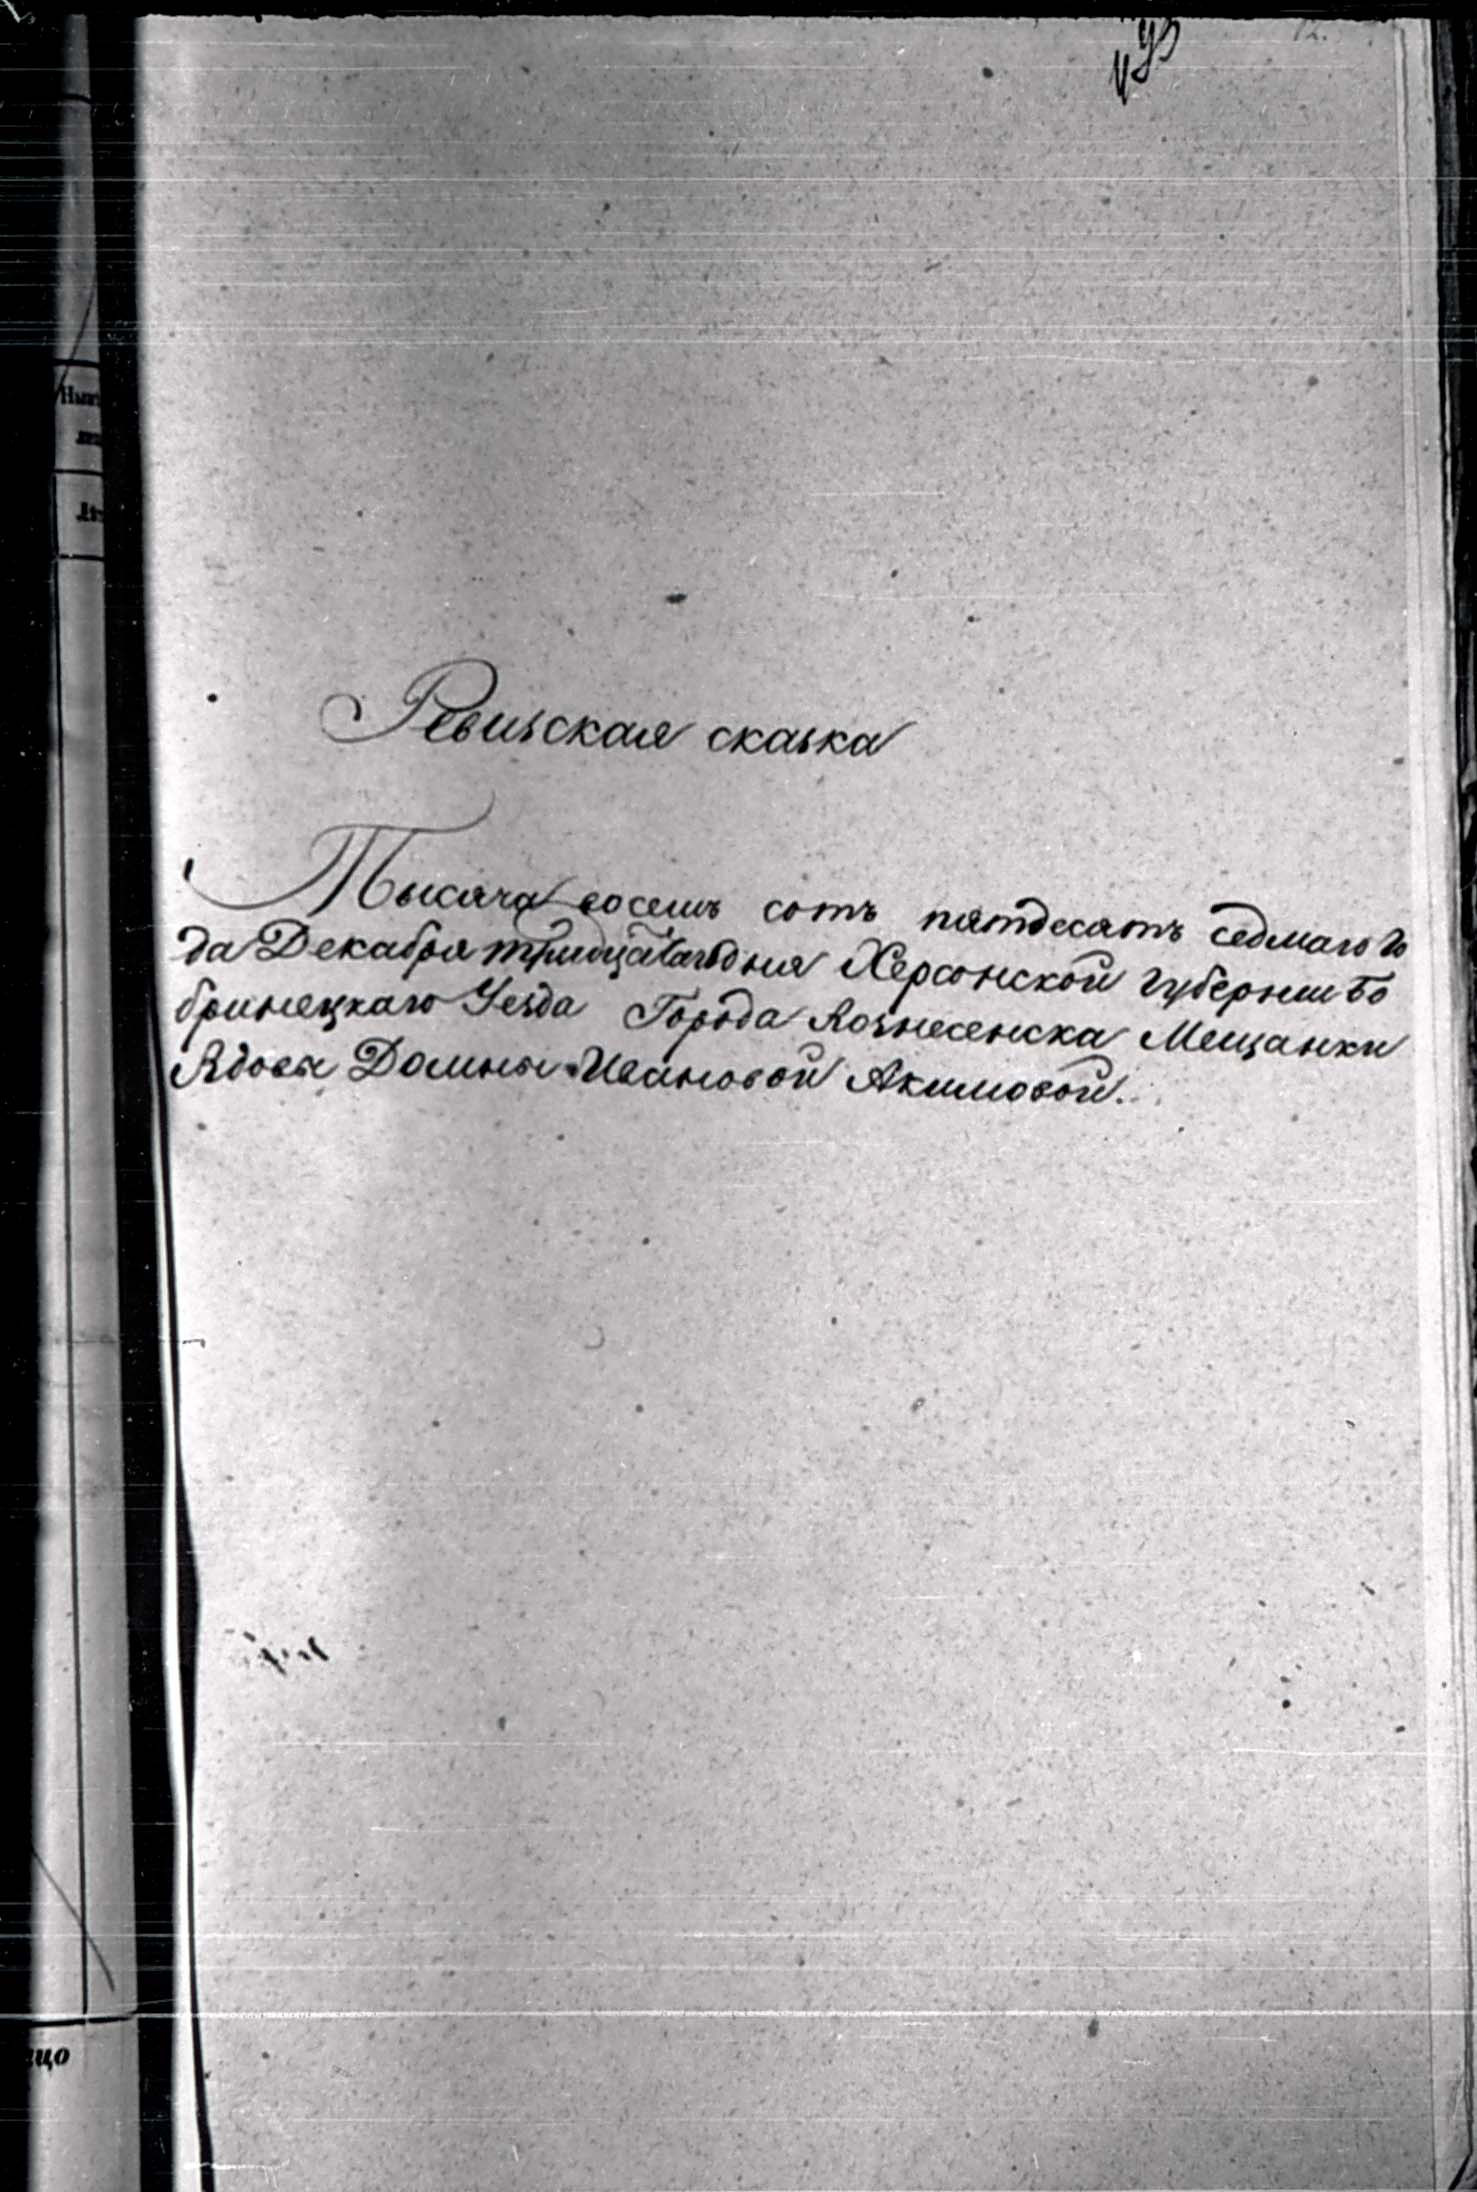 Ревизская сказка
Тысяча восемь сотъ пятдесятъ седмаго го
да Декабря тридцатого дня Херсонской губернии Бо
бринецкаго Уезда Города Вознесенска Мещанки
Вдовы Домны Ивановой Акимовой.
цо